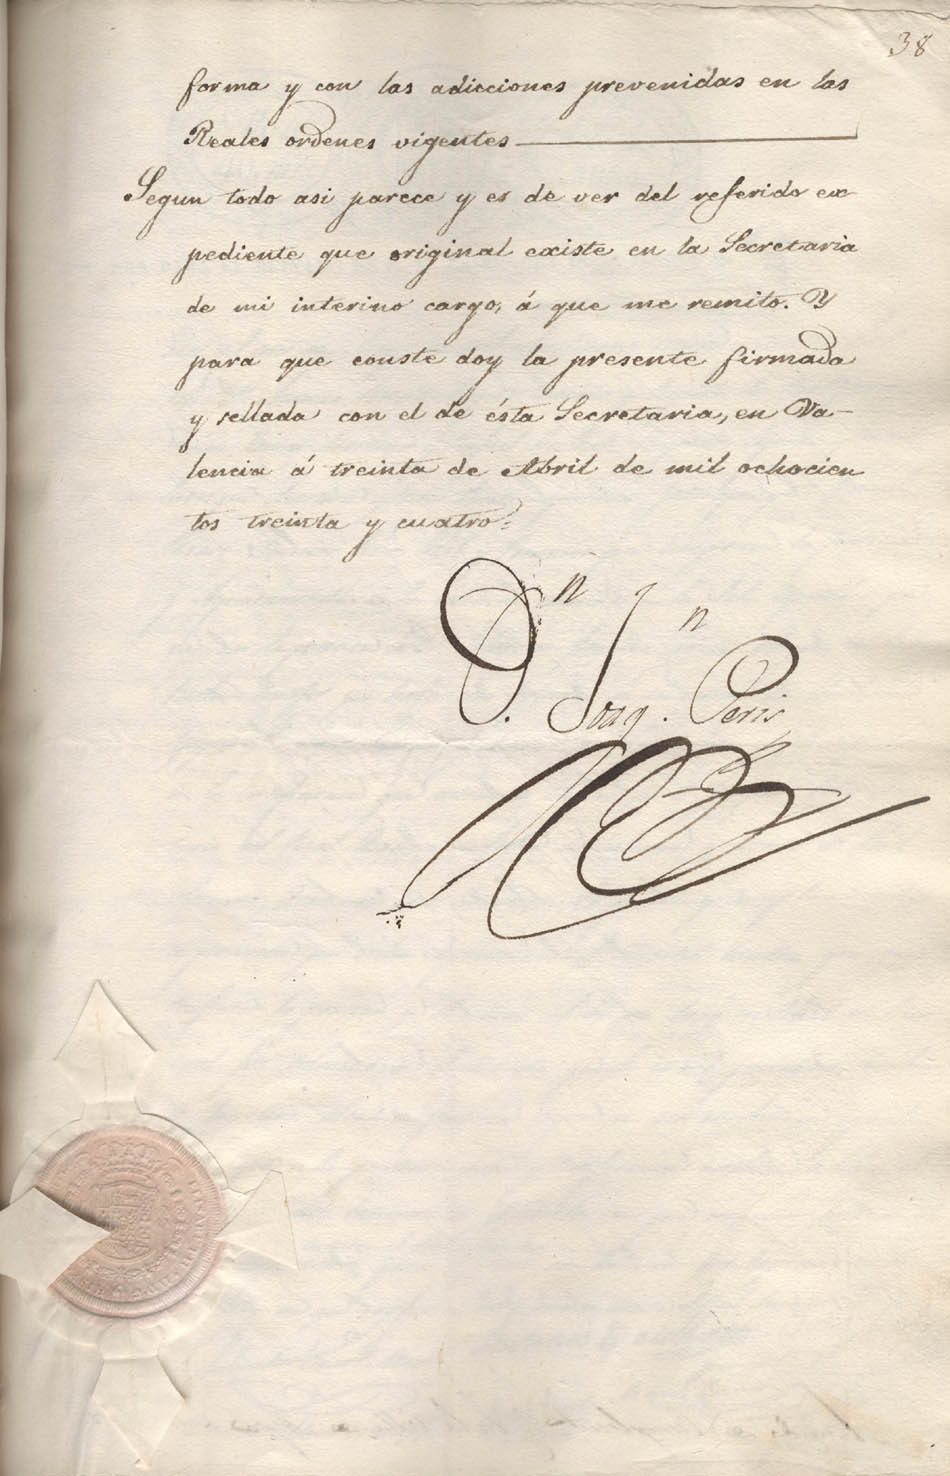 38
forma y con las adicciones prevenidas en las
Reales ordenes vigentes
Segun todo asi parece y es de ver del referido ex
pediente que original existe en la Secretaria
de mi interino cargo, á que me remito. Y
para que conste doy la presente firmada
y sellada con el de ésta Secretaria, en Va-
lencia á treinta de Abril de mil ochocien
tos treinta y cuatro=
D.n Joaq.n Peris